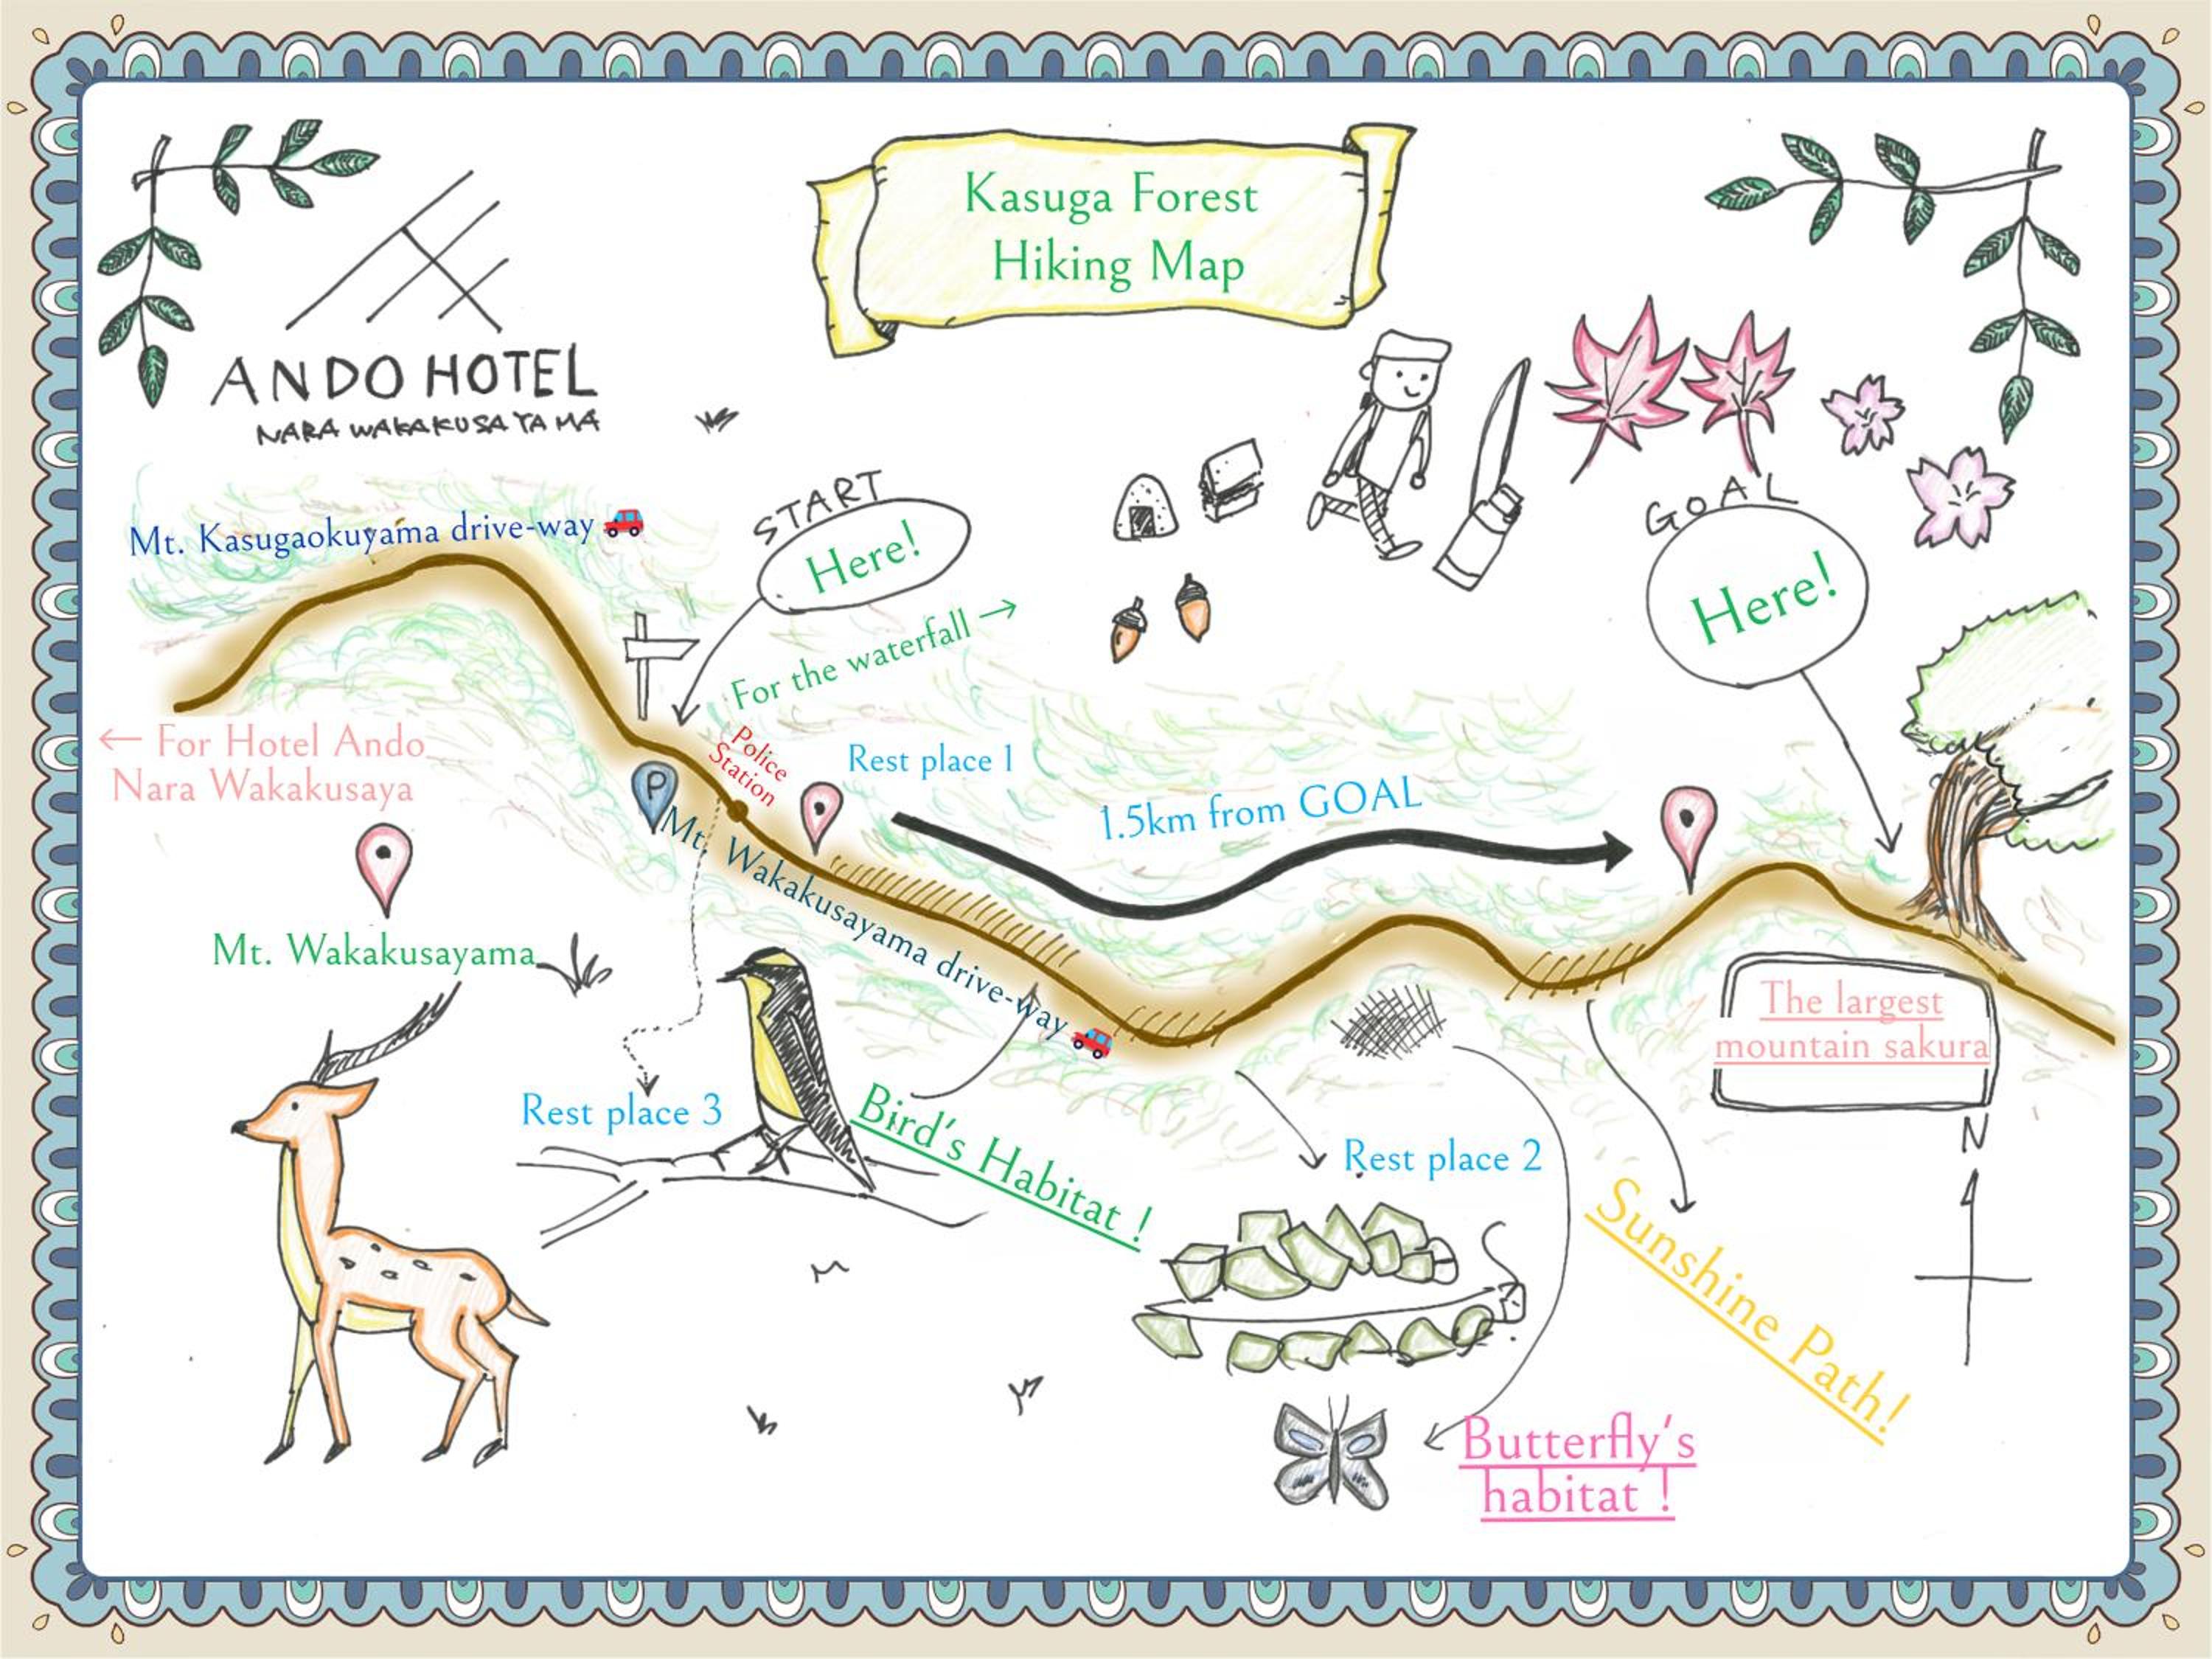 Kasuga Forest
Hiking Map
ANDO HOTEL
NARA WAKAKUSAYAMA
Mt. Kasugaokuyama drive-way
START
Here!
GOAL
Here!
For the waterfall →
← For Hotel Ando
Nara Wakakusaya
Police
Station
Rest place 1
P
1.5km from GOAL
Mt. Wakakusayama drive-way
Mt. Wakakusayama
The largest
mountain sakura
Rest place 3
Bird's Habitat !
Rest place 2
N
Sunshine Path!
Butterfly's
habitat !